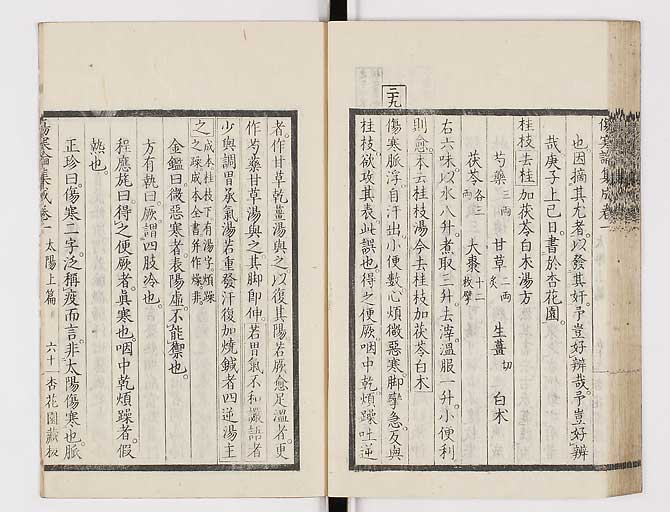 傷寒論集成卷一
也因摘其尤者以發其奸予豈好辨哉予豈好辨
哉庚子上巳日書於杏花園
桂枝去桂加茯苓白朮湯方
芍藥三兩 甘草二兩炙 生薑切 白朮
茯苓各三兩 大棗十二枚擘
右六味以水八升煮取三升去滓溫服一升小便利
則愈本云桂枝湯今去桂枝加茯苓白朮
二十九
傷寒脈浮自汗出小便數心煩微惡寒脚攣急反與
桂枝欲攻其表此誤也得之便厥咽中乾煩躁吐逆
者作甘草乾薑湯與之以復其陽若厥愈足溫者更
作芍藥甘草湯與之其脚即伸若胃氣不和讝語者
少與調胃承氣湯若重發汗復加燒鍼者四逆湯主
之成本桂枝下有湯字煩躁之躁成本全書並作燥非
金鑑曰微惡寒者表陽虛不能禦也
方有執曰厥謂四肢冷也
程應旄曰得之便厥者眞寒也咽中乾煩躁者假
熱也
正珍曰傷寒二字泛稱疫而言非太陽傷寒也脈
傷寒論集成卷一 太陽上篇 六十一 杏花園藏板